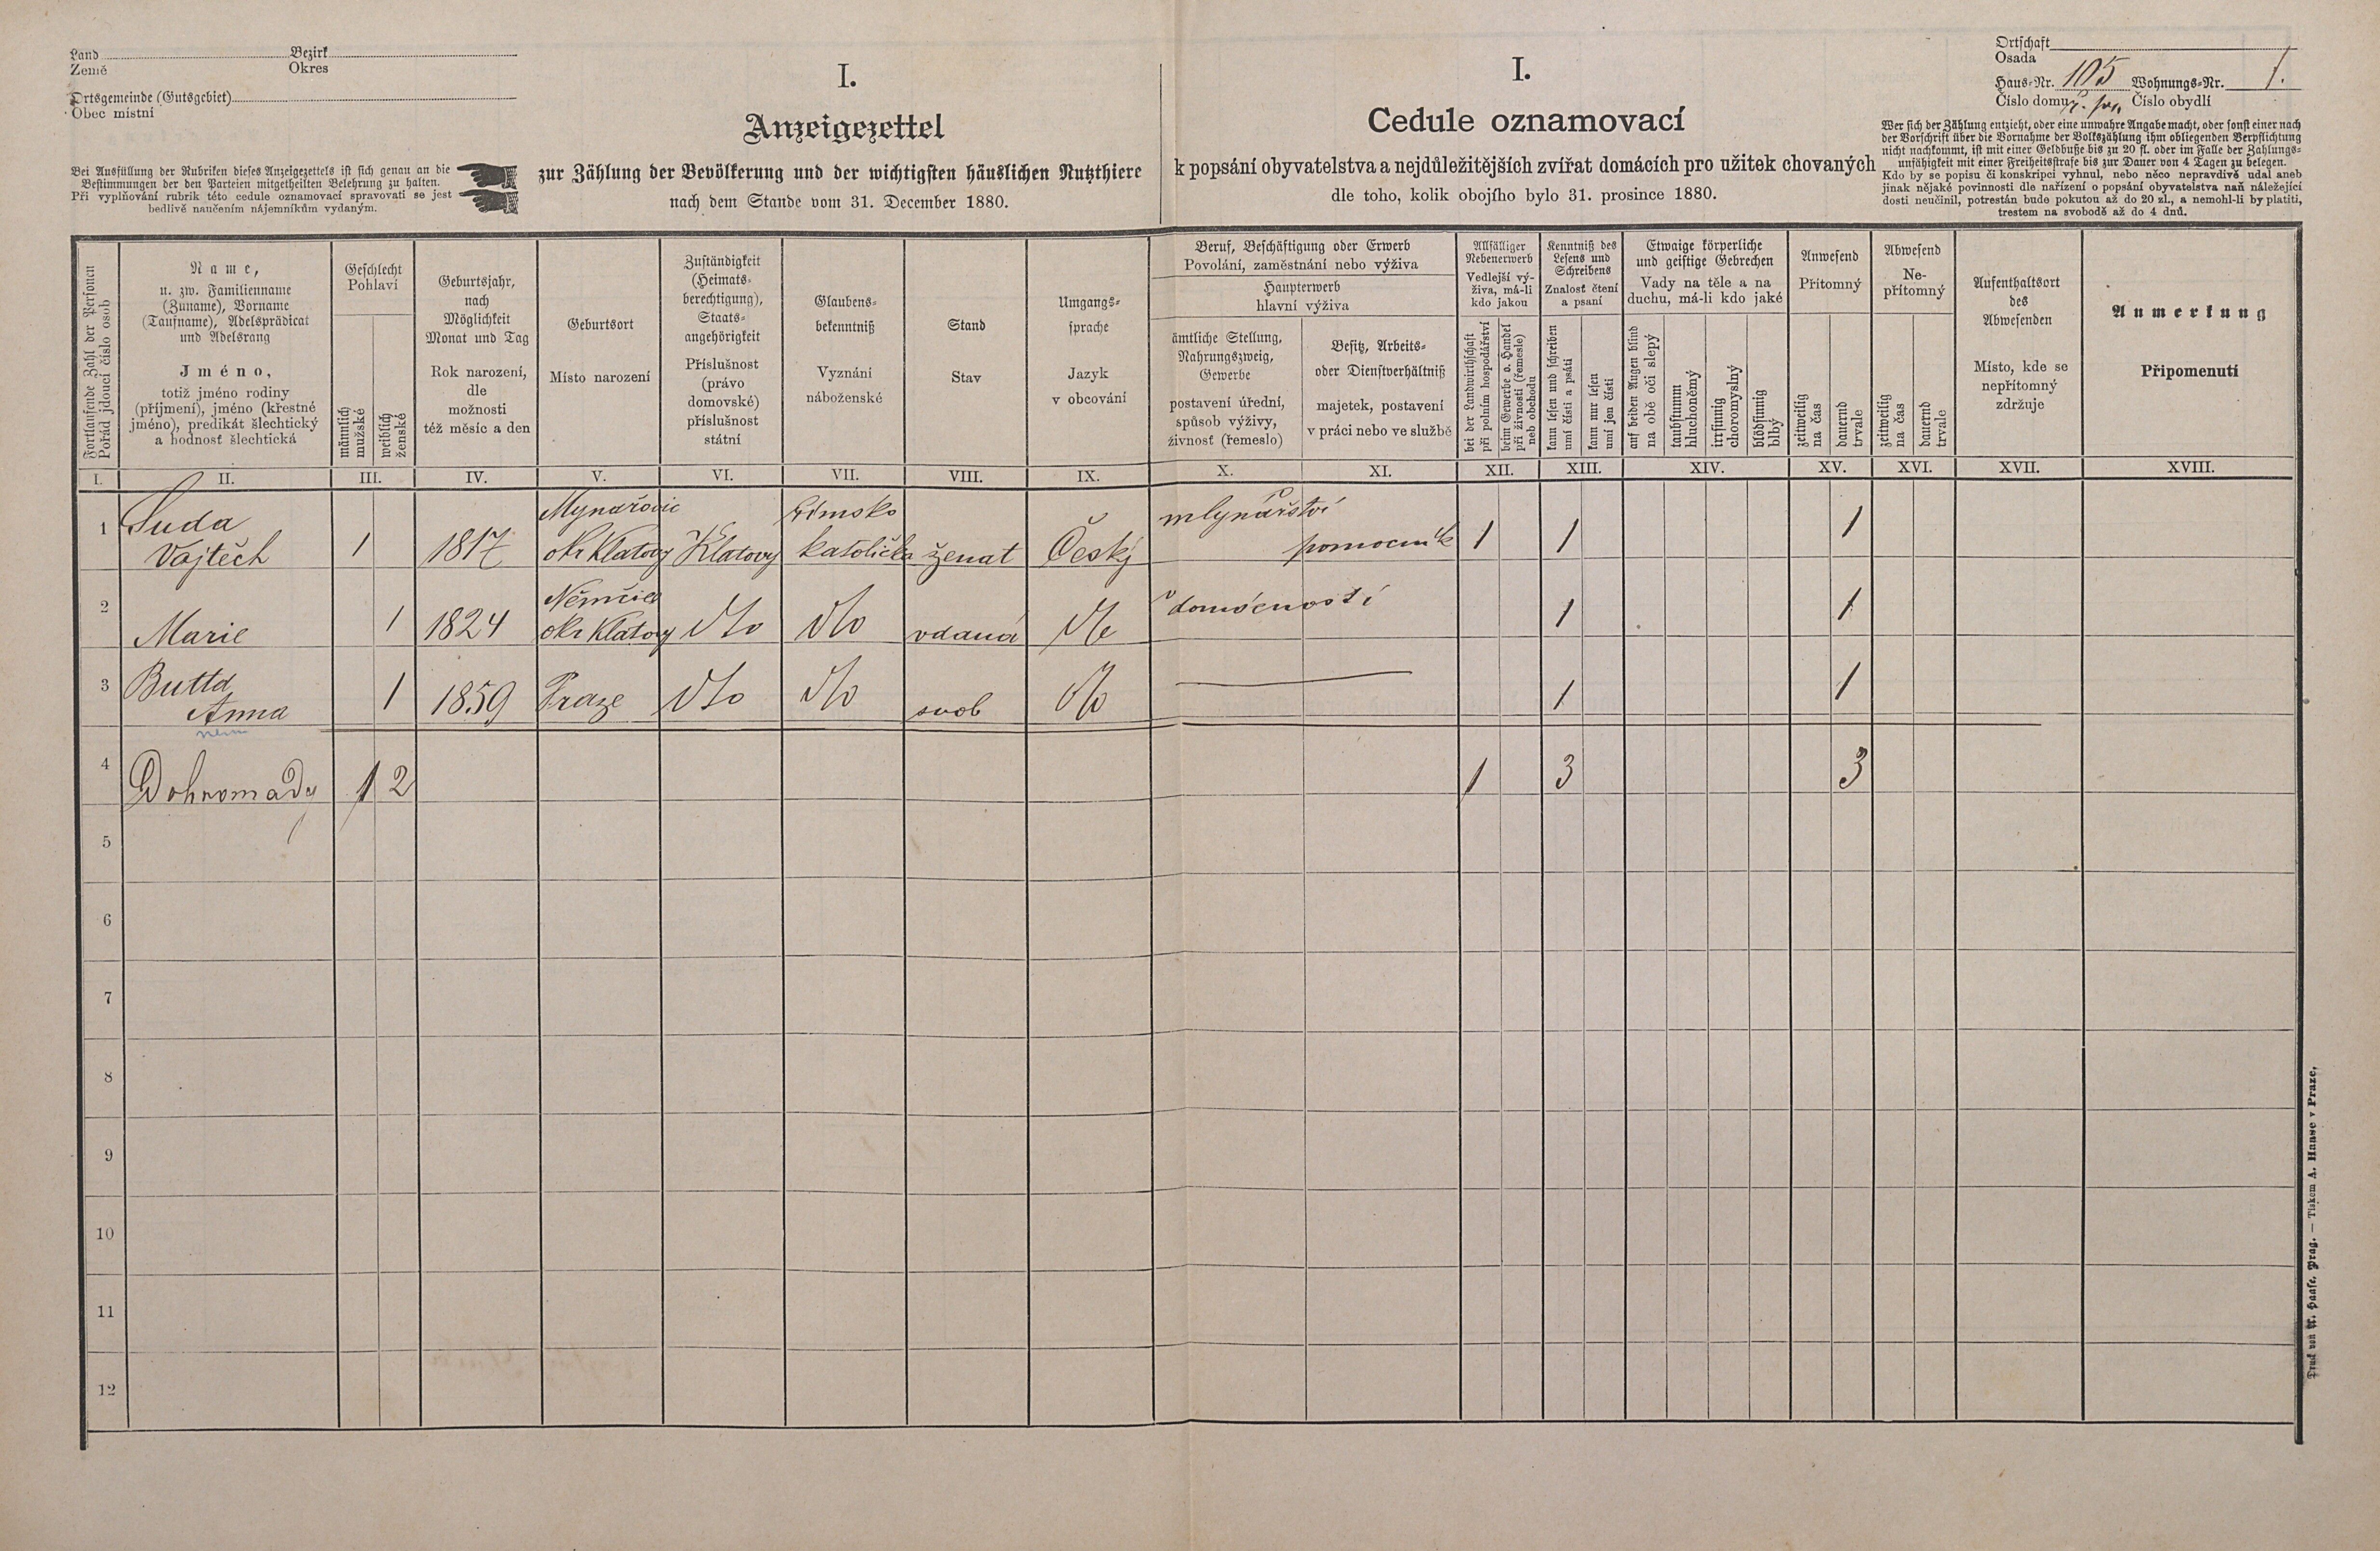 Land Bezirk
Země Okres
Ortsgemeinde (Gutsgebiet)
Obec místní
Bei Ausfüllung der Rubriken dieses Anzeigezettels ist sich genau an die
Bestimmungen der den Parteien mitgetheilten Belehrung zu halten.
Při vyplňování rubrik této cedule oznamovací spravovati se jest
bedlivě naučením nájemníkům vydaným.
I.
Anzeigezettel
zur Zählung der Bevölkerung und der wichtigsten häuslichen Nutzthiere
nach dem Stande vom 31. December 1880.
I.
Cedule oznamovací
k popsání obyvatelstva a nejdůležitějších zvířat domácích pro užitek chovaných
dle toho, kolik obojího bylo 31. prosince 1880.
Ortschaft
Osada
Haus-Nr. 105 Wohnungs-Nr. 1.
Číslo domu Číslo obydlí
Wer sich der Zählung entzieht, oder eine unwahre Angabe macht, oder sonst einer nach
der Vorschrift über die Vornahme der Volkszählung ihm obliegenden Verpflichtung
nicht nachkommt, ist mit einer Geldbuße bis zu 20 fl. oder im Falle der Zahlungs-
unfähigkeit mit einer Freiheitsstrafe bis zur Dauer von 4 Tagen zu belegen.
Kdo by se popisu či konskripci vyhnul, nebo něco nepravdivě udal aneb
jinak nějaké povinnosti dle nařízení o popsání obyvatelstva naň náležející
dosti neučinil, potrestán bude pokutou až do 20 zl., a nemohl-li by platiti,
trestem na svobodě až do 4 dnů.
Fortlaufende Zahl der Personen
Pořád jdoucí číslo osob
Name,
u. zw. Familienname
(Zuname), Vorname
(Taufname), Adelsprädicat
und Adelsrang
Jméno,
totiž jméno rodiny
(příjmení), jméno (křestné
jméno), predikát šlechtický
a hodnosť šlechtická
Geschlecht
Pohlaví
männlich
mužské
weiblich
ženské
Geburtsjahr,
nach
Möglichkeit
Monat und Tag
Rok narození,
dle
možnosti
též měsíc a den
Geburtsort
Místo narození
Zuständigkeit
(Heimats-
berechtigung),
Staats-
angehörigkeit
Příslušnost
(právo
domovské)
příslušnost
státní
Glaubens-
bekenntniß
Vyznání
náboženské
Stand
Stav
Umgangs-
sprache
Jazyk
v obcování
Beruf, Beschäftigung oder Erwerb
Povolání, zaměstnání nebo výživa
Haupterwerb
hlavní výživa
ämtliche Stellung,
Nahrungszweig,
Gewerbe
postavení úřední,
spůsob výživy,
živnosť (řemeslo)
Besitz, Arbeits-
oder Dienstverhältniß
majetek, postavení
v práci nebo ve službě
Allfälliger
Nebenerwerb
Vedlejší vý-
živa, má-li
kdo jakou
bei der Landwirthschaft
při polním hospodářství
beim Gewerbe o. Handel
při živnosti (řemesle)
neb obchodu
Kenntniß des
Lesens und
Schreibens
Znalosť čtení
a psaní
kann lesen und schreiben
umí čísti a psáti
kann nur lesen
umí jen čísti
Etwaige körperliche
und geistige Gebrechen
Vady na těle a na
duchu, má-li kdo jaké
auf beiden Augen blind
na obě oči slepý
taubstumm
hluchoněmý
irrsinnig
choromyslný
blödsinnig
blbý
Anwesend
Přítomný
zeitweilig
na čas
dauernd
trvale
Abwesend
Ne-
přítomný
zeitweilig
na čas
dauernd
trvale
Aufenthaltsort
des
Abwesenden
Místo, kde se
nepřítomný
zdržuje
Anmerkung
Připomenutí
I. II. III. IV. V. VI. VII. VIII. IX. X. XI. XII. XIII. XIV. XV. XVI. XVII. XVIII.
Suda Mynařovic římsko mlynářství
1 Vojtěch 1 1817 okr Klatovy Klatovy katolické ženat Český pomocník 1 1 1
Němčice domácností
2 Marie 1 1824 okr Klatovy vdaná 1 1
Butta
3 Anna 1 1859 Praze svob 1 1
4 Dohromady 1 2 1 3 3
5
6
7
8
9
10
11
12
Druck von A. Haase, Prag. — Tiskem A. Haase v Praze.